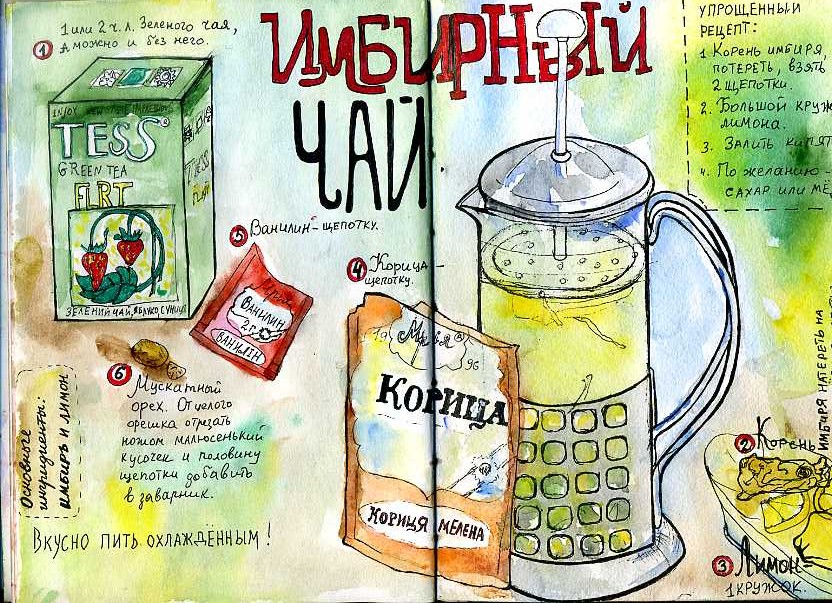 ИМБИРНЫЙ
ЧАЙ
1 1 или 2 ч.л. Зеленого чая,
а можно и без него.
ENJOY
TESS®
GREEN TEA
FLIRT
TESS
ЗЕЛЕНИЙ ЧАЙ, ЯБЛУКО, СУНИЦЯ
5 Ванилин - щепотку.
ВАНИЛИН
2г
ВАНИЛИН
4 Корица -
щепотку.
19 96
КОРИЦА
КОРИЦЯ МЕЛЕНА
6 Мускатный
орех. От целого
орешка отрезать
ножом малюсенький
кусочек и половину
щепотки добавить
в заварник.
Основные
ингредиенты:
имбирь и лимон
Вкусно пить охлаждённым!
УПРОЩЕННЫЙ
РЕЦЕПТ:
1 Корень имбиря,
потереть, взять
2 щепотки.
2. Большой круж
лимона.
3. Залить кипят
4. По желанию -
сахар или мё
2 Корень
имбиря натереть на
3 Лимон
1 кружок.